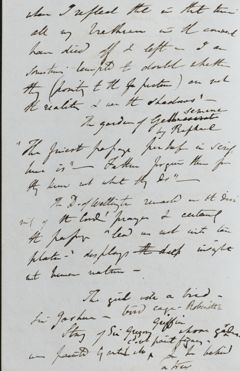 when I reflect that in that time
all my brethren in the convent
have died off & left me I am
sometimes tempted to doubt whether
they (pointing to the pictures) are not
the reality & we the shadows!
The garden of Gethsemane
by Raphael
"The finest passage perhaps in scrip
ture is" — "Father forgive them for
they know not what they do" —
The D. of Wellington's remark on the
of the Lord's prayer & certainly
the passage "lead us not into tem
ptation" displays the deep insight
into human nature —
The girl with a bird
Sir Joshua — bird cage Robinetta
Story of Sir Gregory Griffin
whose
painted